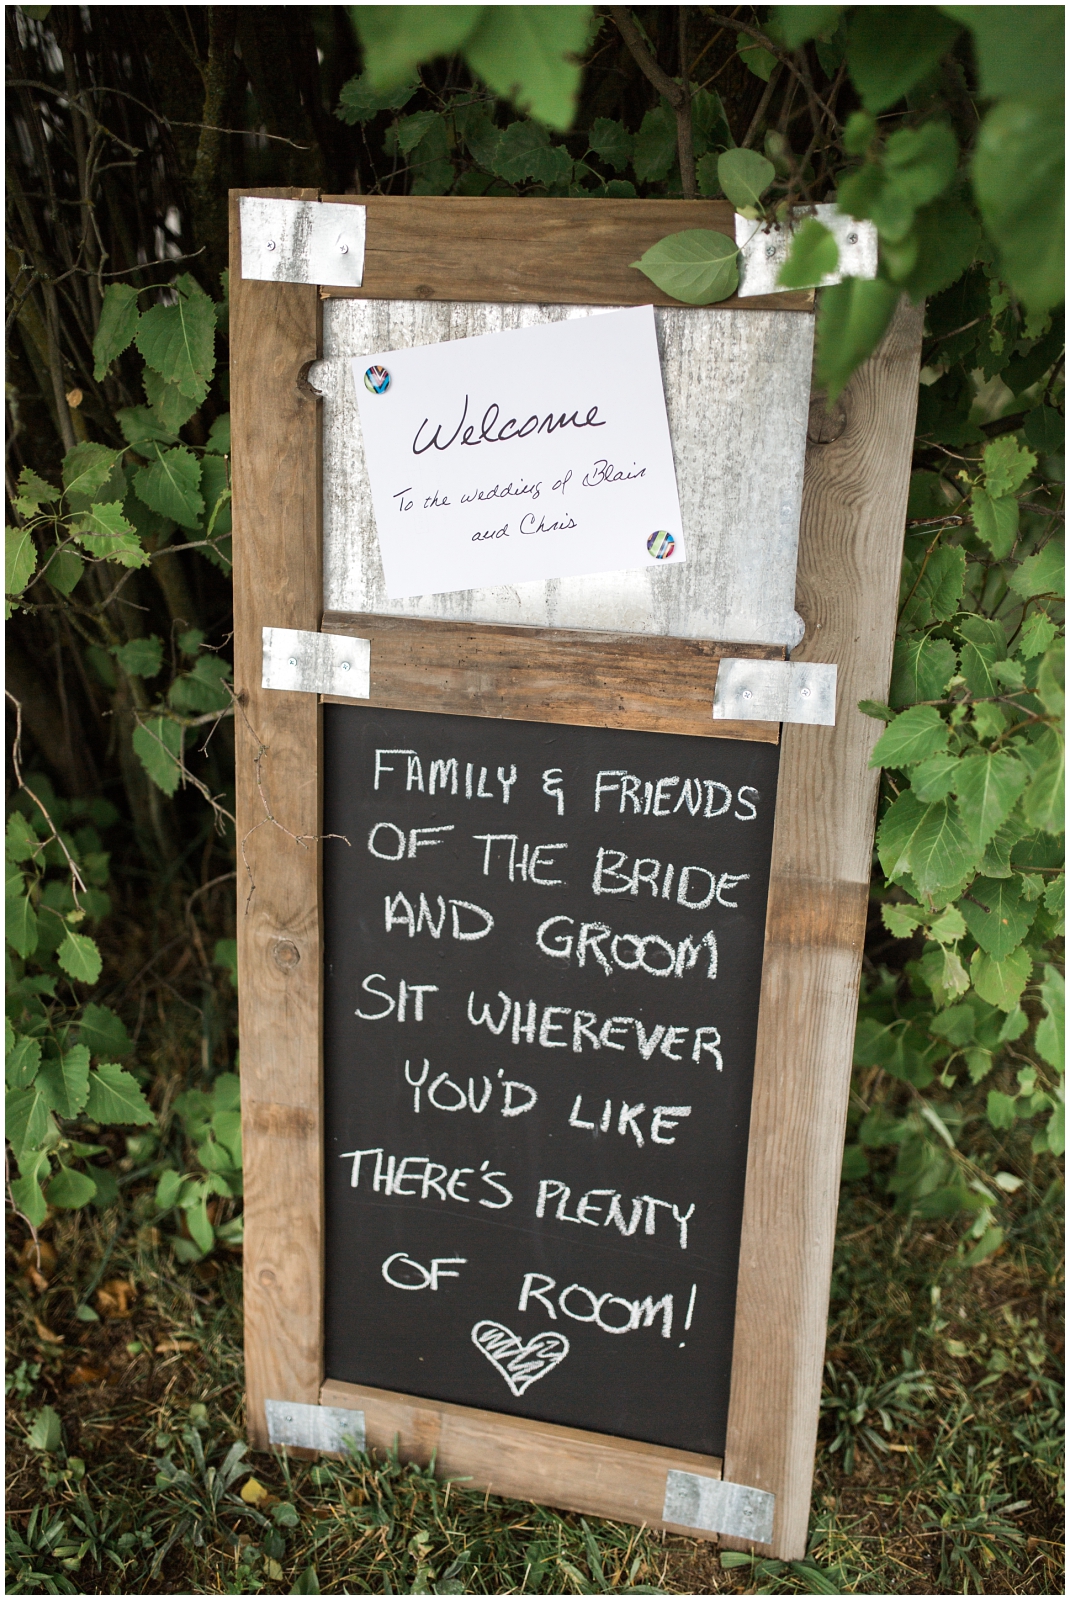 Welcome
To the wedding of Blair
and Chris
FAMILY & FRIENDS
OF THE BRIDE
AND GROOM
SIT WHEREVER
YOU'D LIKE
THERE'S PLENTY
OF ROOM!